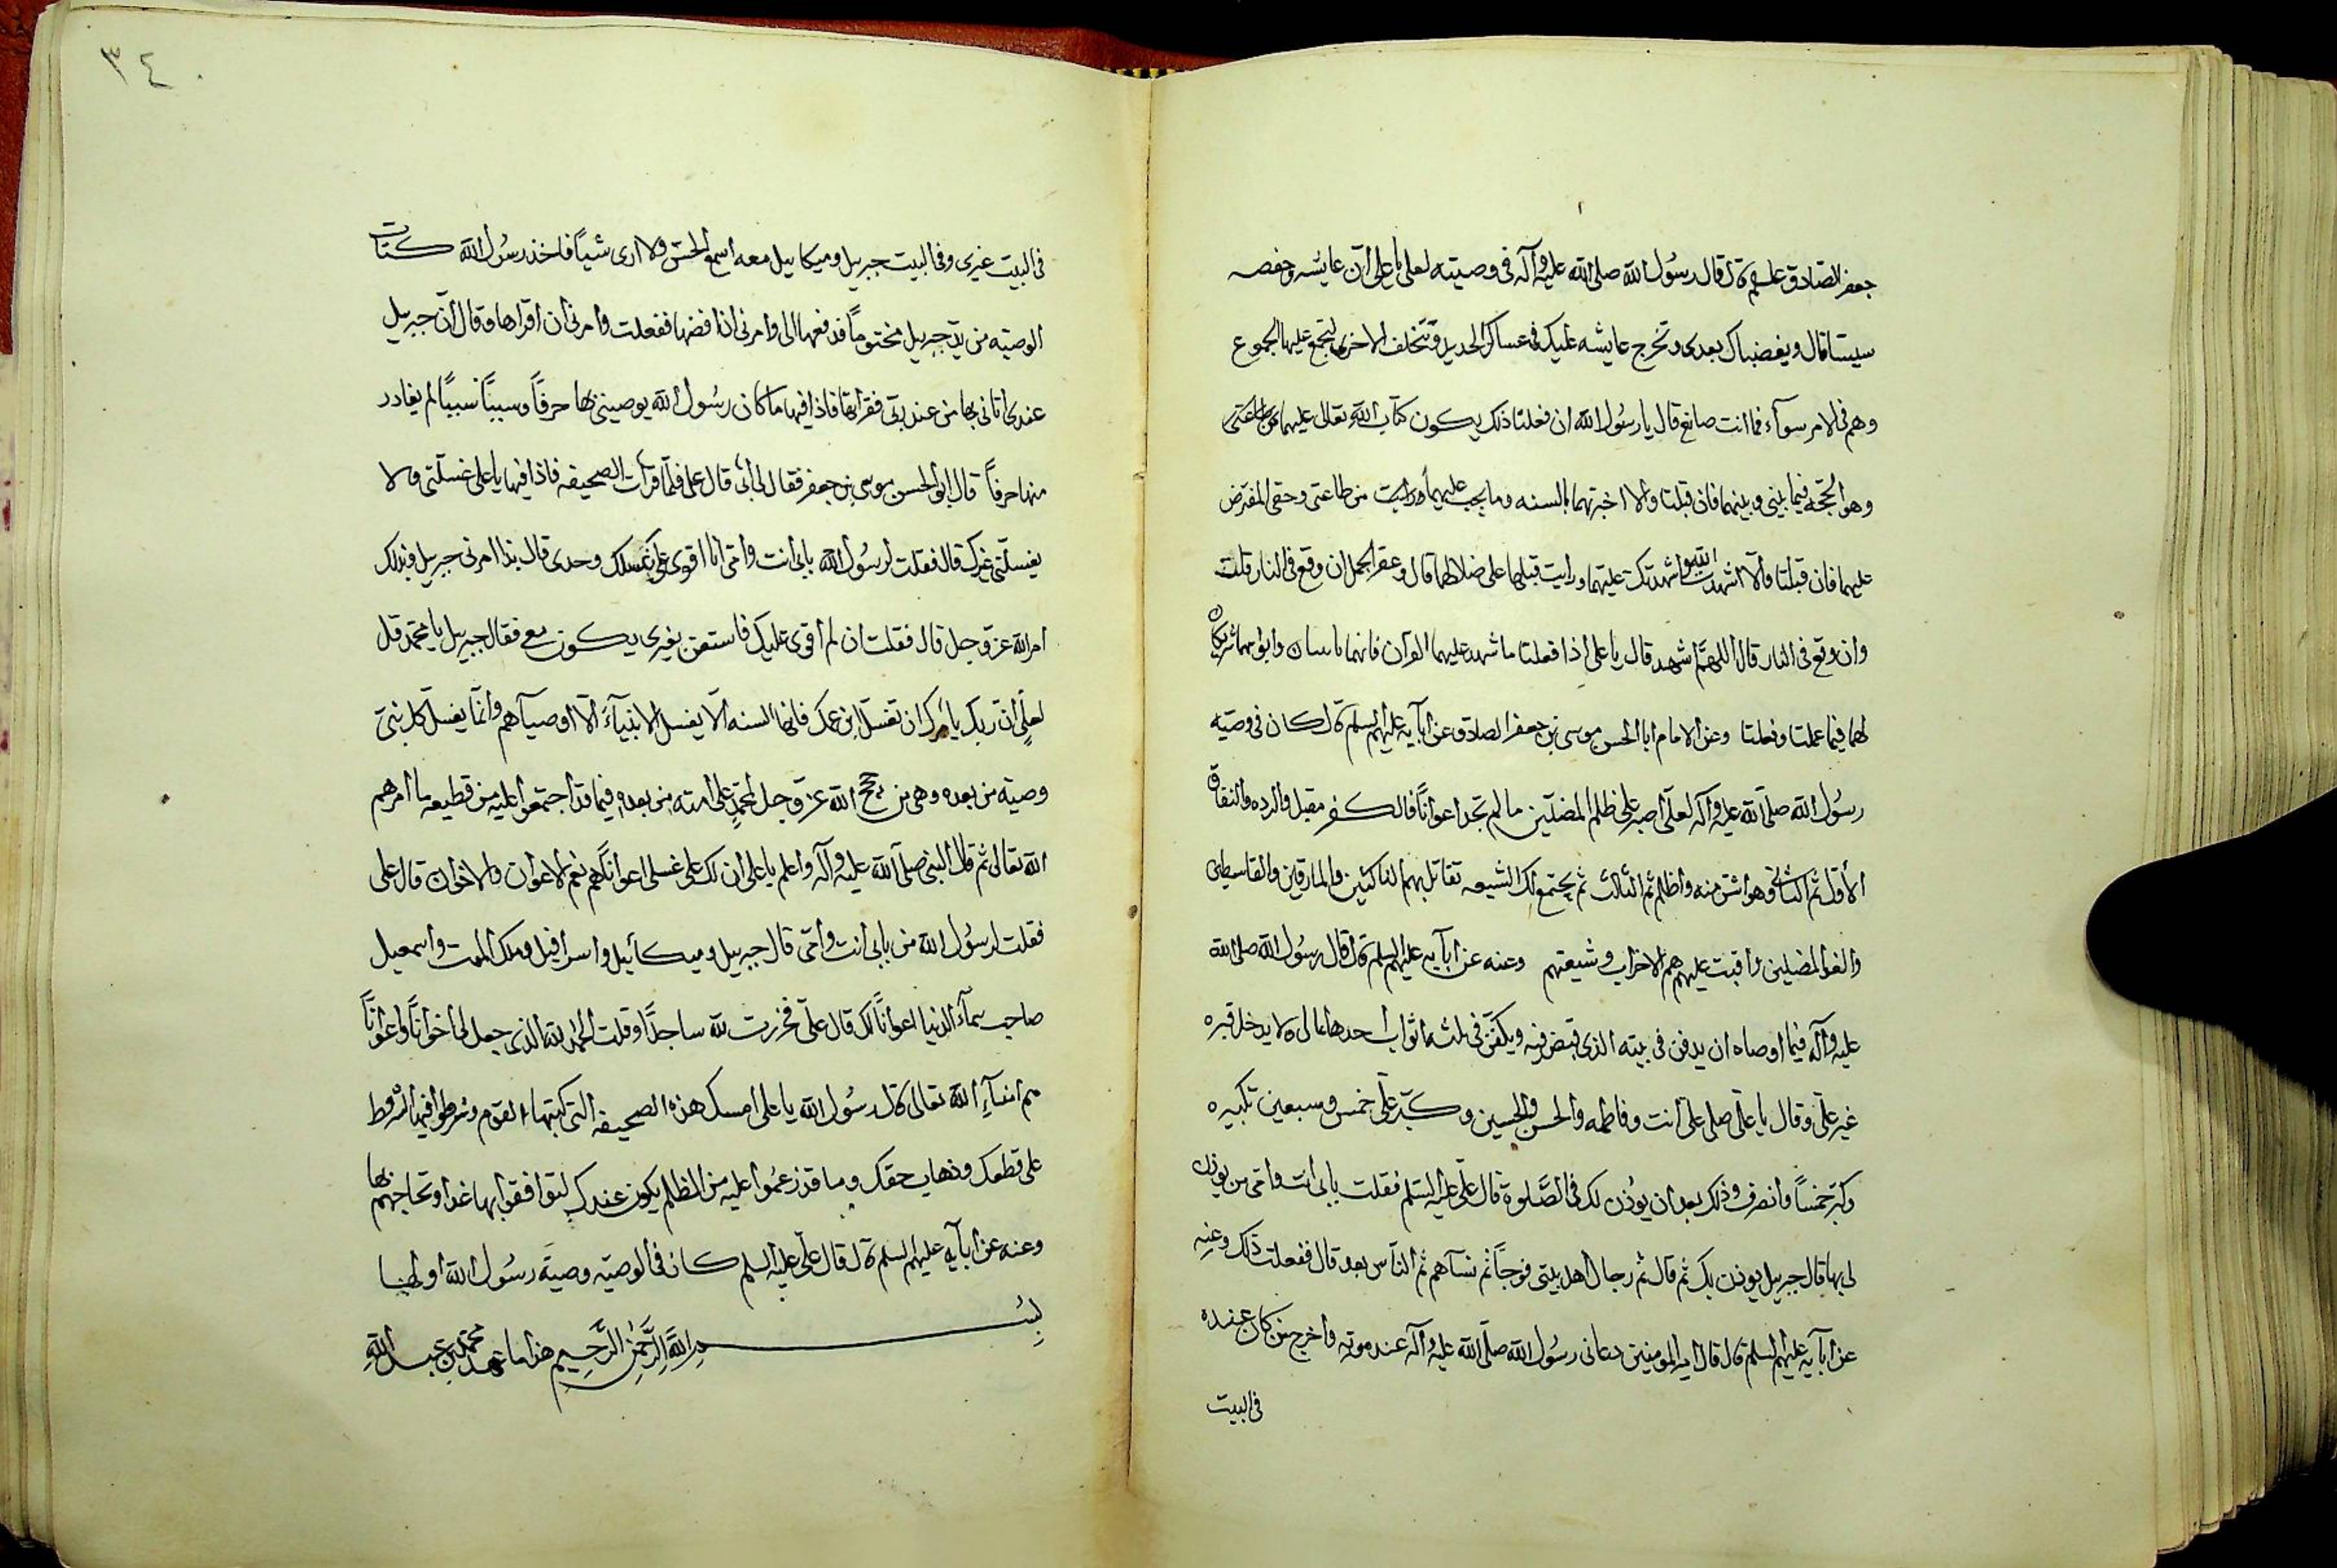 جعفر الصادق علسلم قال قال رسول الله صلى الله عليه وآله في وصيته لعلي يا علي ان عايشه وحفصه
سيشاقاك ويغضباك بعدي وتخرج عايشه عليك في عساكر الحديد وتتخلف الاخرى لتجمع عليها الجموع
وهم في الامر سوآء فما انت صانع قال يا رسول الله ان فعلتا ذلك يكون كتاب الله تعالى عليهما
وهو الحجة فيما بيني وبينهما فان قبلتا والا اخبرتهما بالسنه وما يجب عليهما من طاعتي وحقي المفترض
عليهما فان قبلتا والا اشهدت الله واشهدتك عليهما ورايت قبلهما على ضلالهما قال وعقر الجمل ان وقع في النار قلت
وان وقع في النار قال اللهم اشهد قال يا علي اذا فعلتا ما شهد عليهما القرآن فانهما وابواهما شريكان
لهما فيما عملتا وفعلتا وعن الامام ابا الحسن موسى بن جعفر الصادق عن ابآيه عليهم السلم قال كان في وصيه
رسول الله صلى الله عليه وآله لعلي اصبر على ظلم المضلين ما لم تجد اعوانًا فالكفر مقبل والرده والنفاق
الأول ثم الثاني وهو اشر منه واظلم ثم الثالث ثم يجتمع لك الشيعه تقاتل بهم الناكثين والمارقين والقاسطين
والعن المضلين واقنت عليهم هم الاحزاب وشيعتهم وعنه عن ابآيه عليهم السلم قال قال رسول الله صلى الله
عليه وآله فيما اوصاه ان يدفن في بيته الذي قبض فيه ويكفن في ثلثه اثواب احدها يماني ولا يدخل قبره
غير علي وقال يا علي صلي علي انت وفاطمه والحسن والحسين وكبر علي خمس وسبعين تكبيره
وكبر خمسًا وانصرف وذلك بعد ان يؤذن لك في الصلوة قال علي عليه السلم فقلت بابي انت وامي من يوذن
لي بها قال جبريل يوذن بك ثم قال ثم رجال اهل بيتي فوجًا ثم نسآهم ثم الناس بعد قال ففعلت ذلك وعنه
عن ابآيه عليهم السلم قال قال امير المومنين دعاني رسول الله صلى الله عليه وآله عند موته واخرج من كان عنده
في البيت
٣٤
في البيت غيري وفي البيت جبريل وميكاييل معه اسمع الحس ولا ارى شيئًا فاخذ رسول الله كتاب
الوصيه من يد جبريل مختومًا فدفعها الي وامرني ان افضها ففعلت وامرني ان اقراها وقال ان جبريل
عندي اتاني بها من عند ربي فقراتها فاذا فيها ما كان رسول الله يوصيني بها حرفًا وسببًا سببًا لم يغادر
منها حرفًا قال ابو الحسن موسى بن جعفر فقال لي ابي قال علي فلما قرأت الصحيفه فاذا فيها يا علي غسلني ولا
يغسلني غيرك قال فقلت لرسول الله بابي انت وامي انا اقوى على غسلك وحدي قال بذا امرني جبريل وبذلك
امر الله عز وجل قال فقلت ان لم اقوى عليك فاستعن بغيري يكون معي فقال جبريل يا محمد قل
لعلي ان ربك يامرك ان تغسل ابن عمك فانها السنه الا يغسل الانبيآء الا اوصيآهم وانما يغسل كل نبي
وصيه من بعده وهي من حجج الله عز وجل لمحمد على امته من بعده فيما قد اجتمعوا عليه من قطيعه ما امرهم
الله تعالى ثم قال النبي صلى الله عليه وآله واعلم يا علي ان لك على غسلي اعوانًا هم نعم الاعوان والاخوان قال علي
فقلت لرسول الله من بابي انت وامي قال جبريل وميكائيل واسرافيل وملك الموت واسمعيل
صاحب سمآء الدنيا اعوانًا لك قال علي فخررت لله ساجدًا وقلت الحمد لله الذي جعل لي اخوانًا واعوانًا
هم امنآء الله تعالى قال رسول الله يا علي امسك هذه الصحيفه التي كتبها القوم وشرطوا فيها الشروط
على قطعك وذهاب حقك وما قد زعموا عليه من الظلم يكون عندك لتوافقوا بها غدا وتحاجهم بها
وعنه عن ابآيه عليهم السلم قال قال علي عليه السلم كان في الوصيه وصية رسول الله اولها
بسم الله الرحمن الرحيم هذا ما عهد محمد بن عبد الله